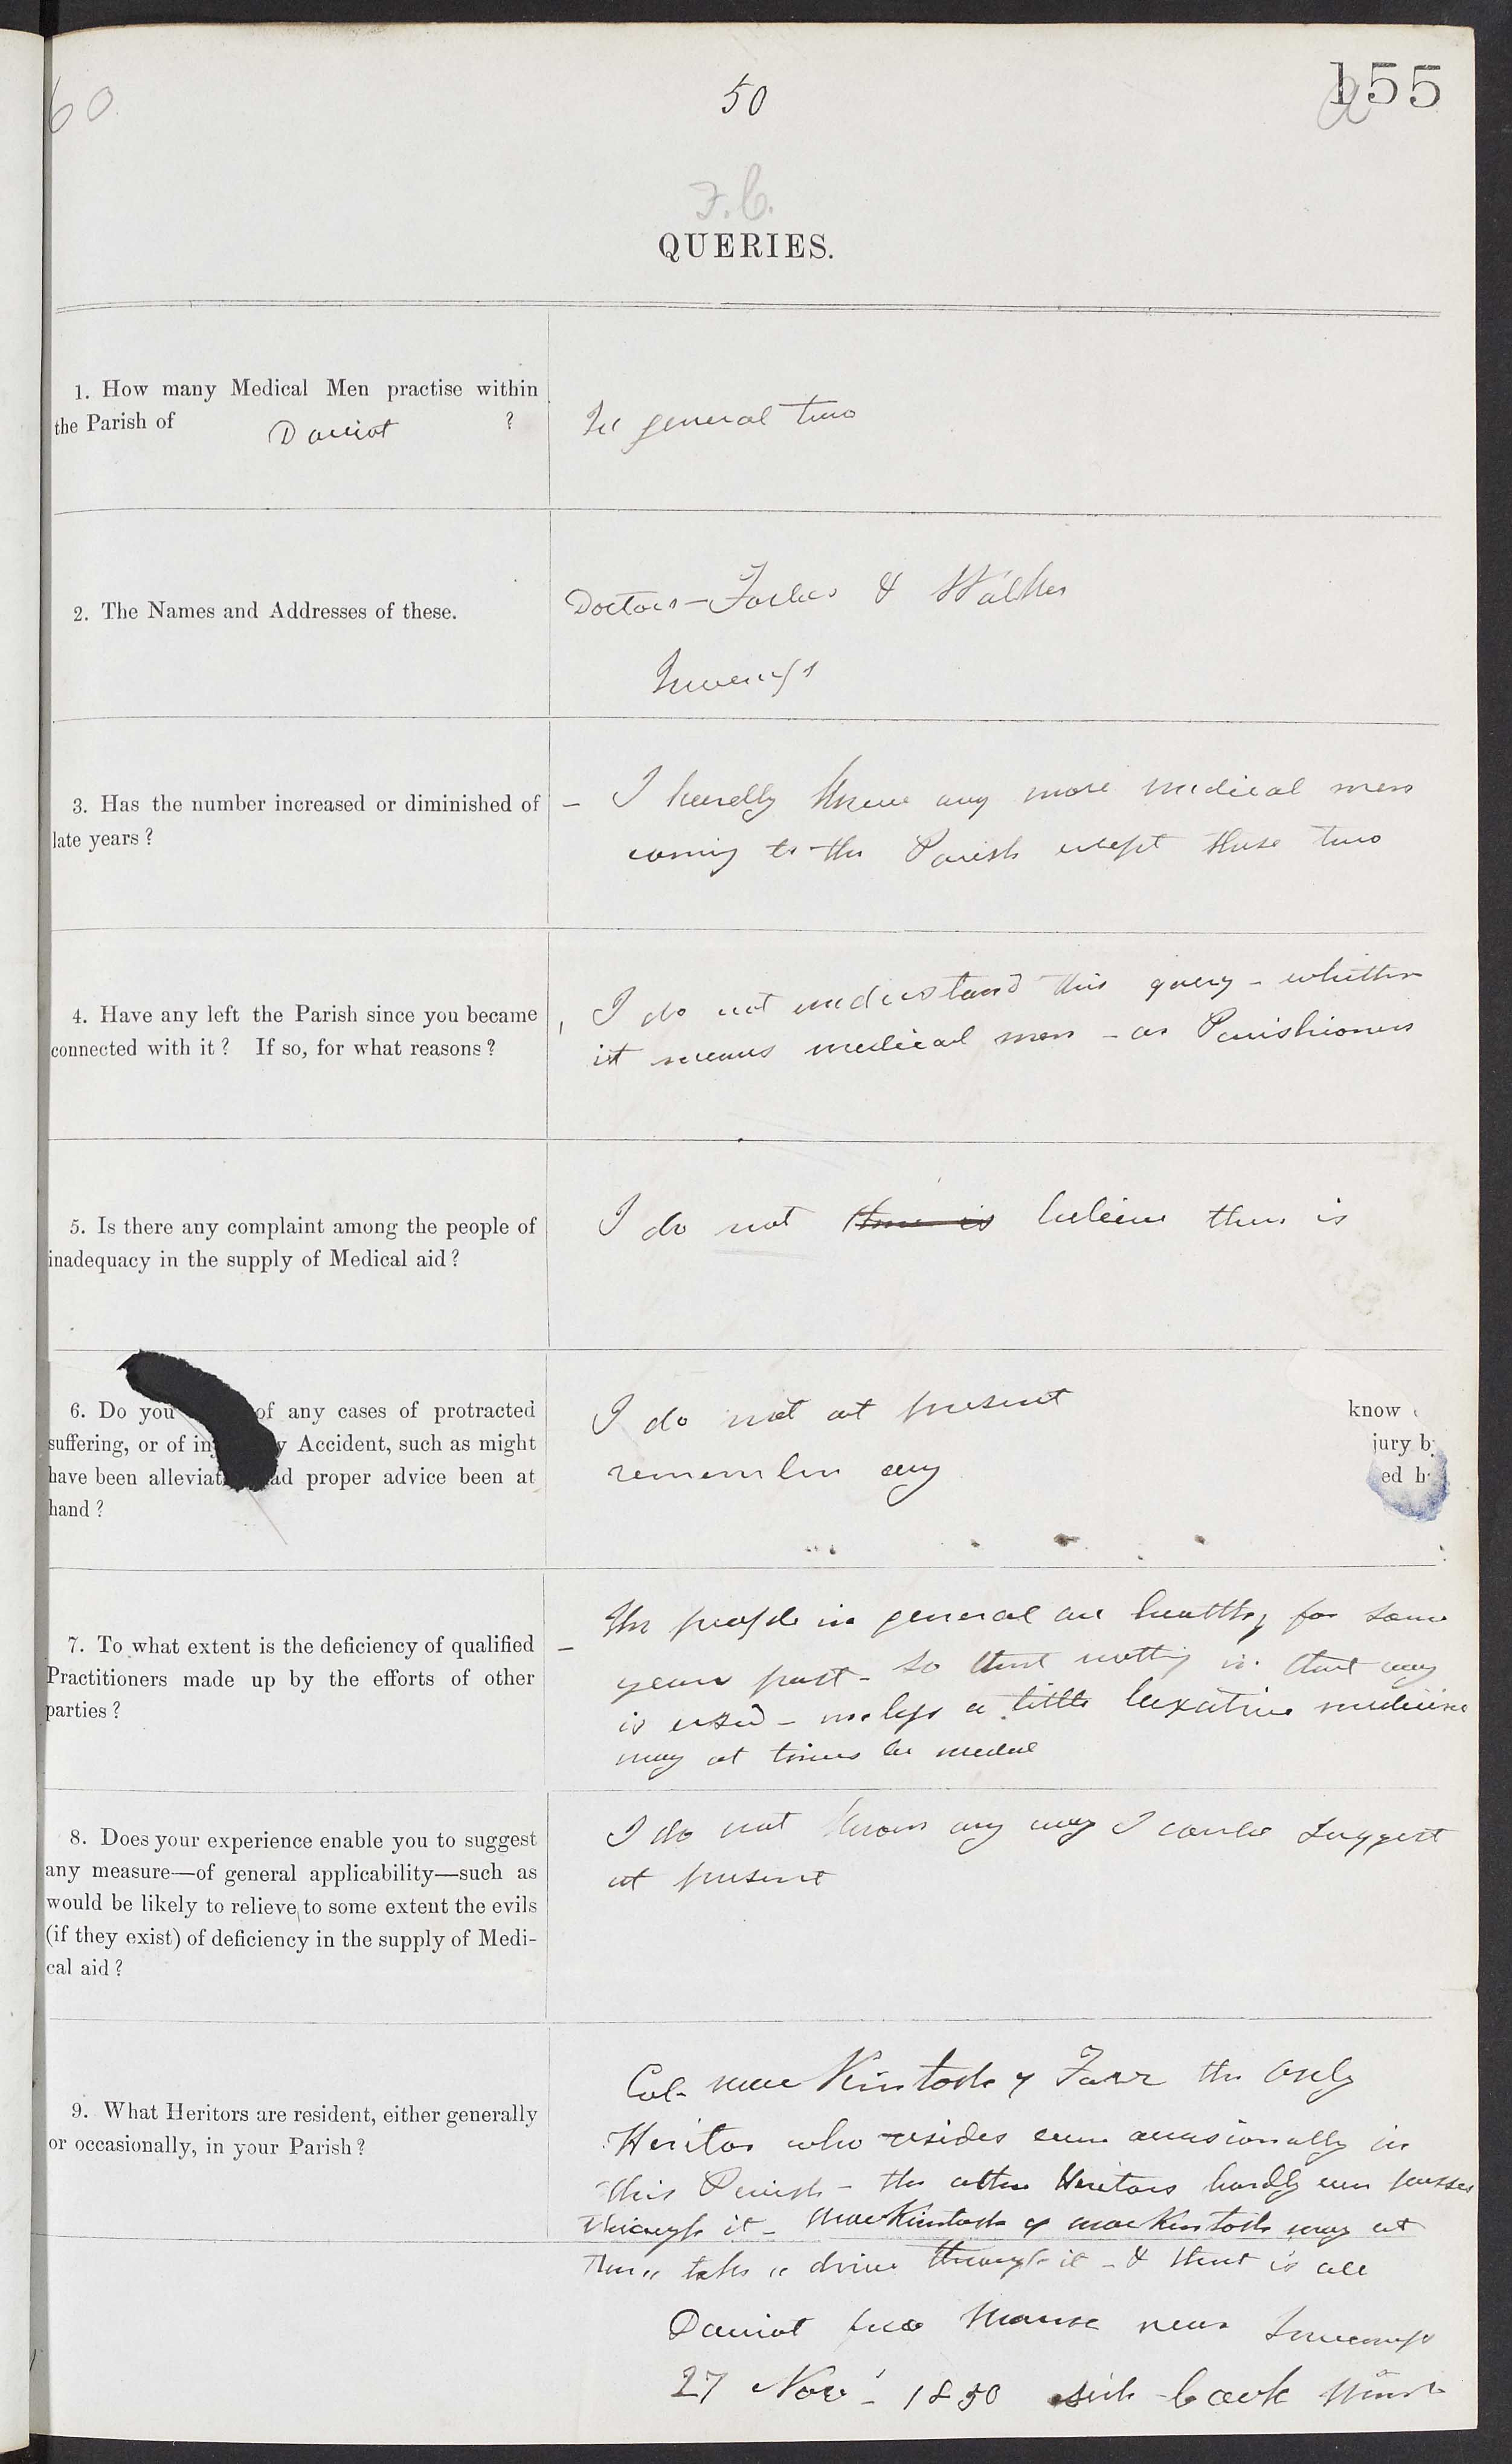 60
50
155
F.C.
QUERIES.
1. How many Medical Men practise within
the Parish of Daviot ?
In general two
2. The Names and Addresses of these.
Doctors - Forbes & Walker
Inverness
3. Has the number increased or diminished of
late years ?
- I hardly know any more medical men
coming to the Parish except these two
4. Have any left the Parish since you became
connected with it ? If so, for what reasons ?
I do not understand this query - whether
it means medical men - or Parishioners
5. Is there any complaint among the people of
inadequacy in the supply of Medical aid ?
I do not there is believe there is
6. Do you of any cases of protracted
suffering, or of in y Accident, such as might
have been alleviat ad proper advice been at
hand ?
I do not at present
remember any
know
jury b
ed b
7. To what extent is the deficiency of qualified
Practitioners made up by the efforts of other
parties ?
- The people in general are healthy for some
years past - so that nothing in that way
is used - unless a little laxative medicine
may at times be needed
8. Does your experience enable you to suggest
any measure—of general applicability—such as
would be likely to relieve to some extent the evils
(if they exist) of deficiency in the supply of Medi-
cal aid ?
I do not know any way I could suggest
at present
9. What Heritors are resident, either generally
or occasionally, in your Parish ?
Col- MacKintosh of Farr the only
Heritor who resides even occasionally in
this Parish - the other Heritors hardly ever passes
through it - MacKintosh of MacKintosh may at
times take a drive through it - & that is all
Daviot free Manse near Inverness
27 Nov - 1850 back